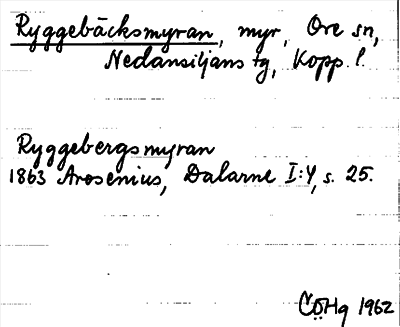 Ryggebäcksmyran, myr, Ore sn,
Nedansiljans tg, Kopp. l.
Ryggebergsmyran
1863 Arosenius, Dalarne I:4, s. 25.
CÖHg 1962